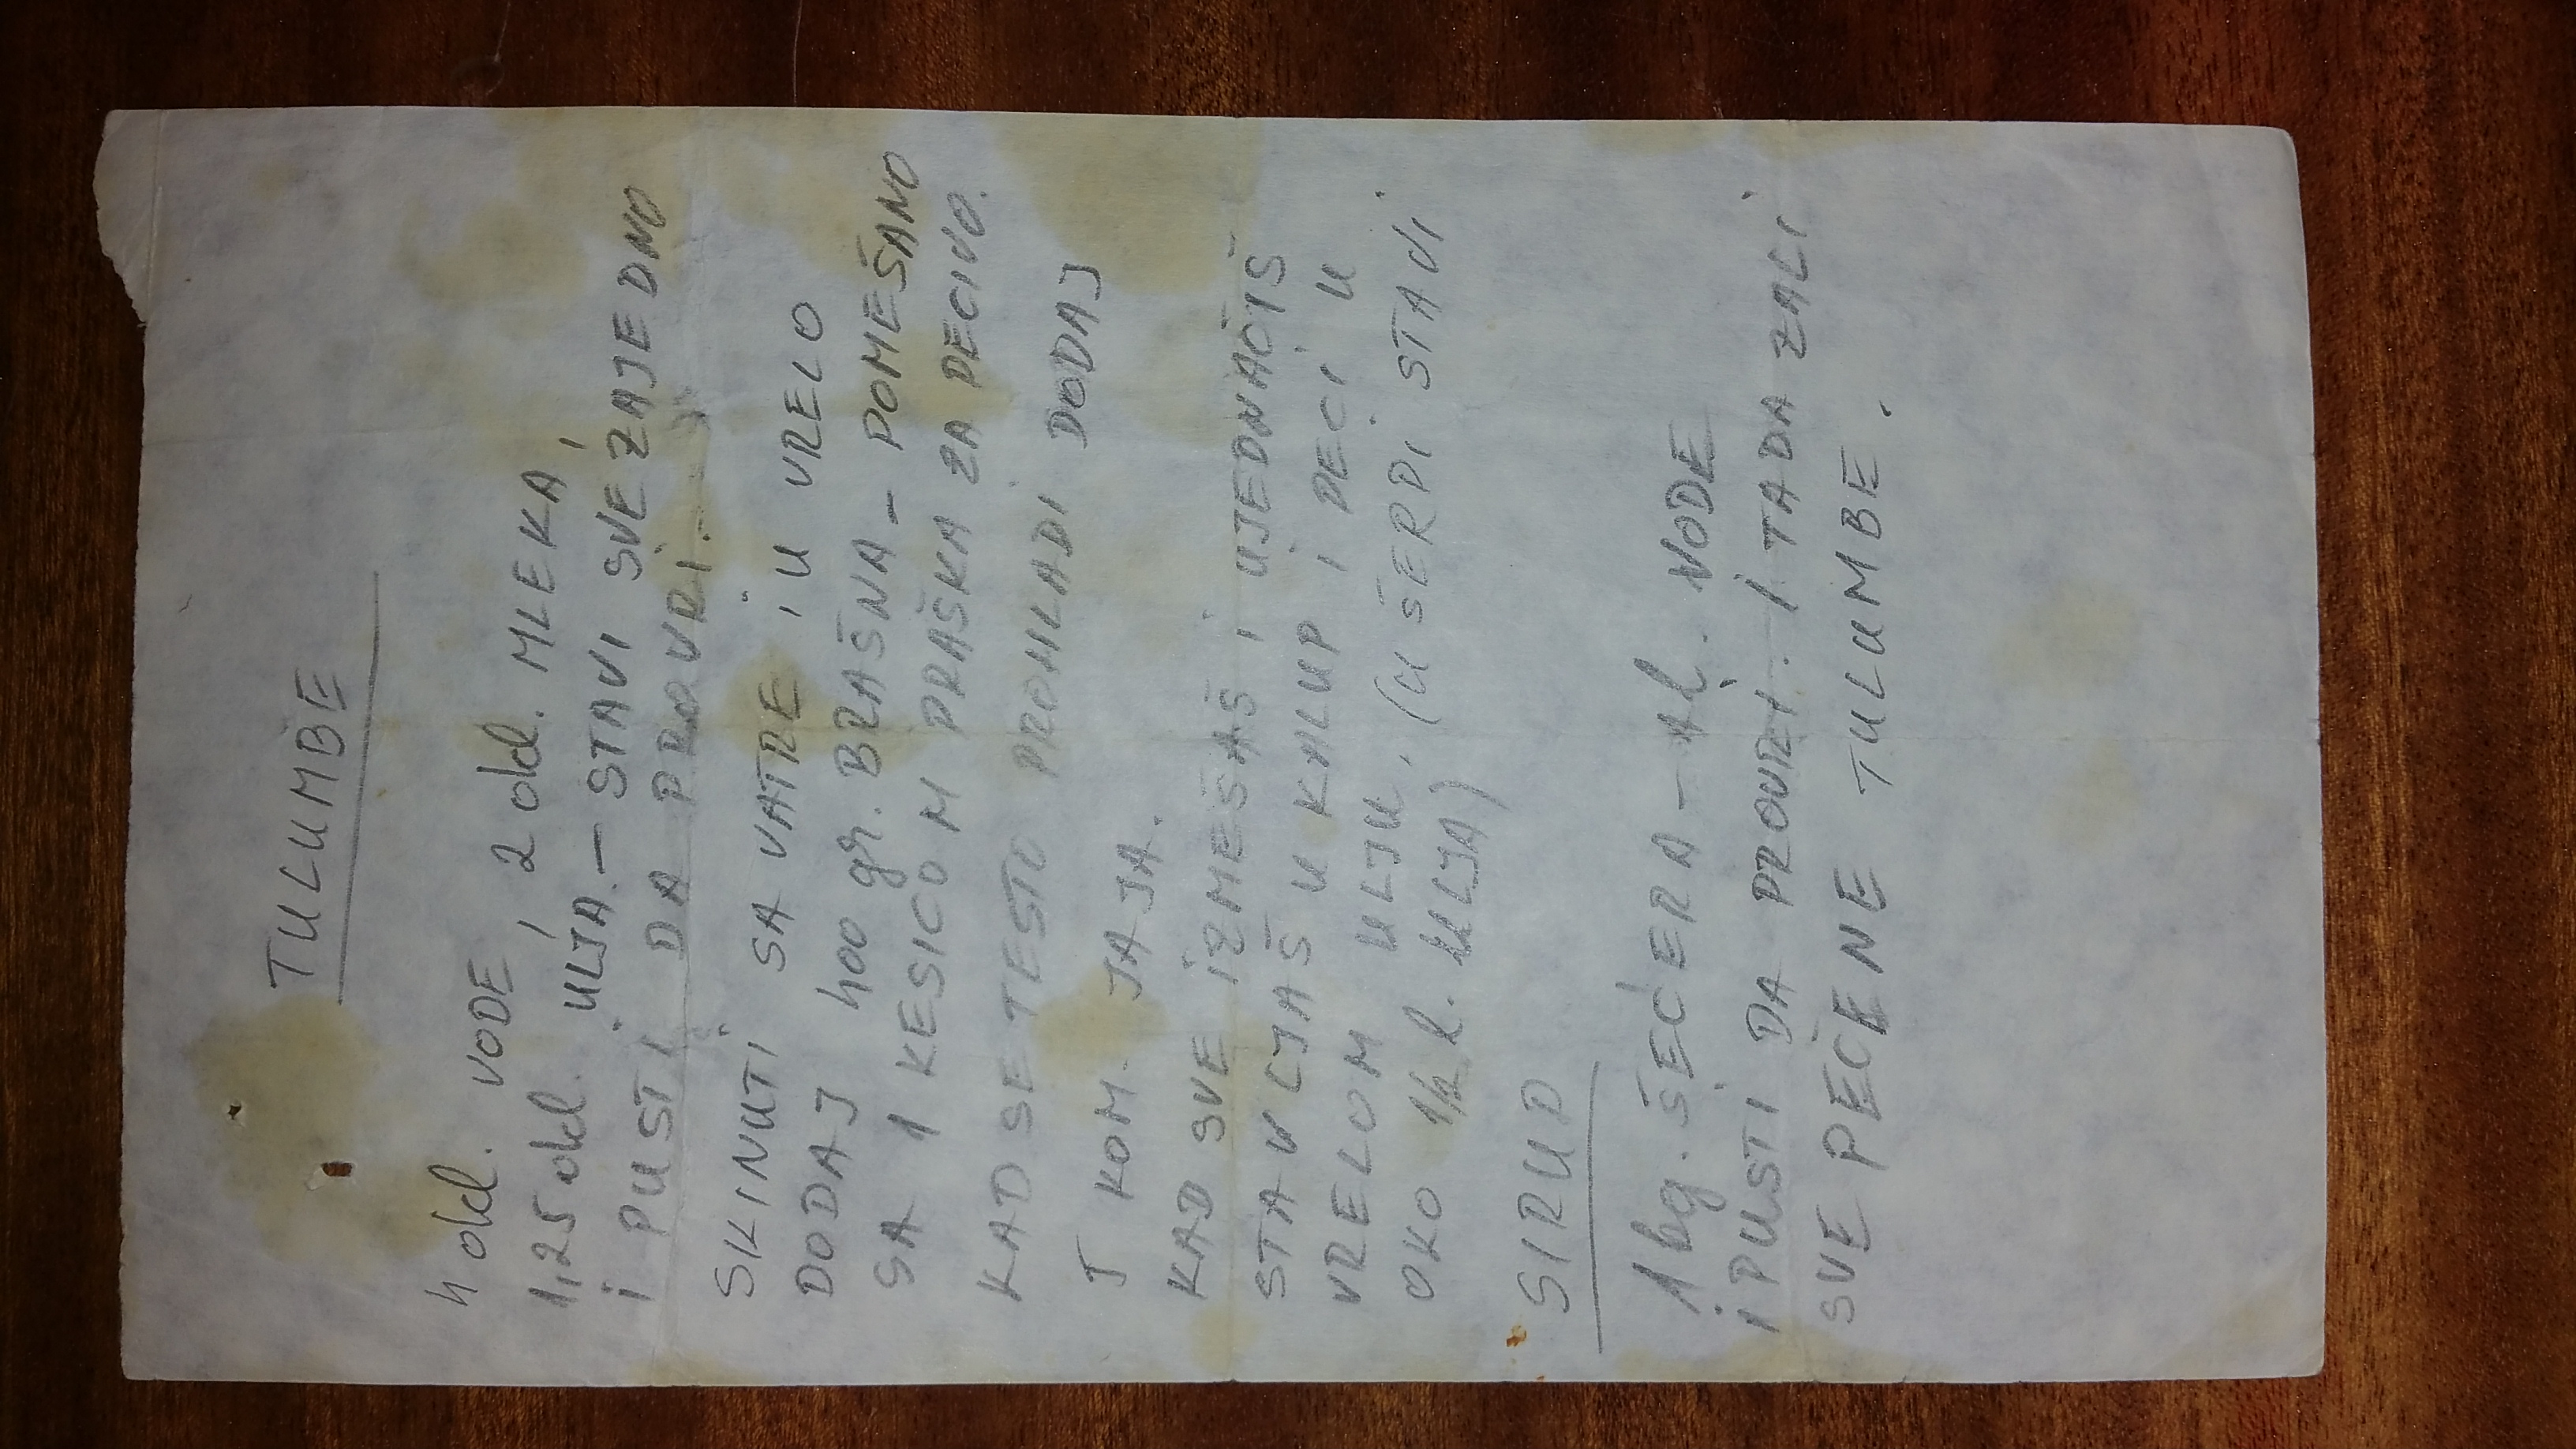 TULUMBE
4 dcl. VODE, 2 dcl. MLEKA,
1,25 dcl. ULJA. – STAVI SVE ZAJEDNO
i PUSTi DA PROVRi.
SKINUTi SA VATRE i U VRELO
DODAJ 400 gr. BRAŠNA – POMEŠANO
SA 1 KESICOM PRAŠKA ZA PECIVO.
KAD SE TESTO PROHLADi DODAJ
5 KOM. JAJA.
KAD SVE iZMEŠAŠ i UJEDNAČIŠ
STAVLJAŠ U KALUP i PECi U
VRELOM ULJU. (U ŠERPi STAVi
OKO 1/2 l. ULJA)
SIRUP
1 kg. ŠEĆERA – 1 l. VODE
i PUSTi DA PROVRi. I TADA ZALi
SVE PEČENE TULUMBE.